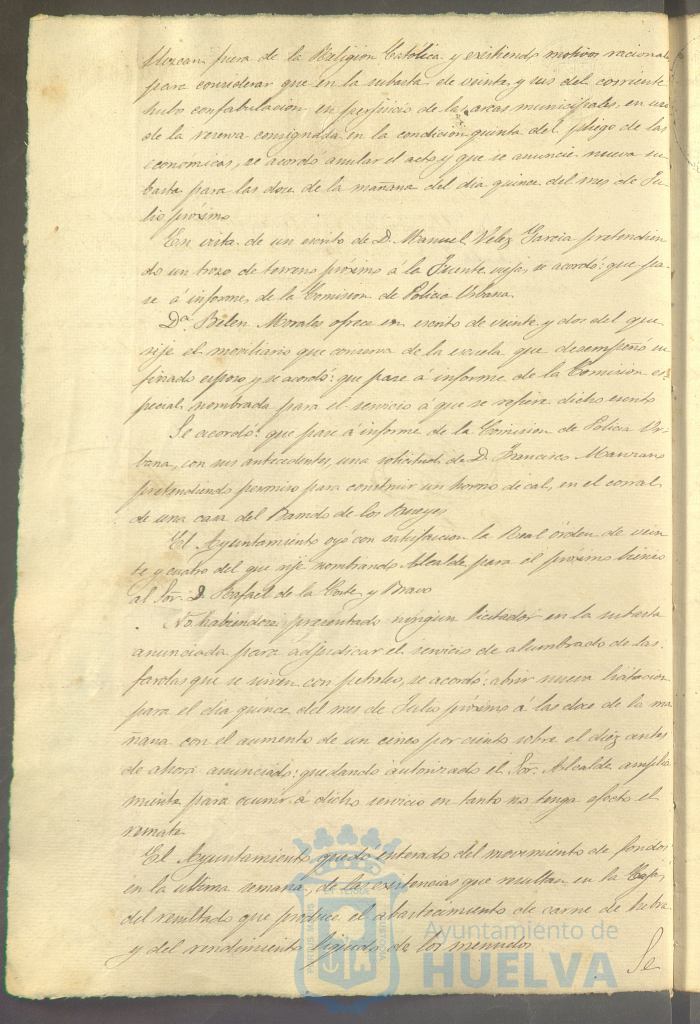 llezcan fuera de la Religion Católica y existiendo motivos racionales
para considerar que en la subasta de veinte y seis del corriente
hubo confabulacion en perjuicio de las arcas municipales, en uso
de la reserva consignada en la condicion quinta del pliego de las
economicas, se acordó anular el acto y que se anuncie nueva su-
basta para las doce de la mañana del dia quince del mes de Ju-
lio próximo
En vista de un escrito de D. Manuel Velez Garcia pretendien-
do un trozo de terreno próximo á la Fuente vieja, se acordó: que pa-
se á informe de la Comision de Policia Urbana.
Dª Belen Morales ofrece en escrito de veinte y dos del que
rije el mobiliario que conserva de la escuela que desempeñó su
finado esposo y se acordó: que pase á informe de la Comision es-
pecial nombrada para el servicio á que se refiere dicho escrito
Se acordó: que pase á informe de la Comision de Policia Ur-
bana, con sus antecedentes, una solicitud de D. Francisco Manzano
pretendiendo permiso para construir un horno de cal, en el corral
de una casa del Barrio de los Bueyes
El Ayuntamiento oyó con satisfaccion la Real órden de vein-
te y cuatro del que rije nombrando Alcalde para el próximo bienio
al Sor. D. Rafael de la Corte y Bravo
No habiendose presentado ningun licitador en la subasta
anunciada para adjudicar el servicio de alumbrado de las
farolas que se sirven con petroleo, se acordó: abrir nueva licitacion
para el dia quince del mes de Julio próximo á las doce de la ma-
ñana con el aumento de un cinco por ciento sobre el diez antes
de ahora anunciado: quedando autorizado el Sor. Alcalde amplia-
mente para ocurrir á dicho servicio en tanto no tenga efecto el
remate
El Ayuntamiento quedó enterado del movimiento de fondos
en la ultima semana, de las existencias que resultan en la Caja,
del resultado que produce el abastecimiento de carne de hebra
y del rendimiento líquido de los menudos
Se
Ayuntamiento de
HUELVA